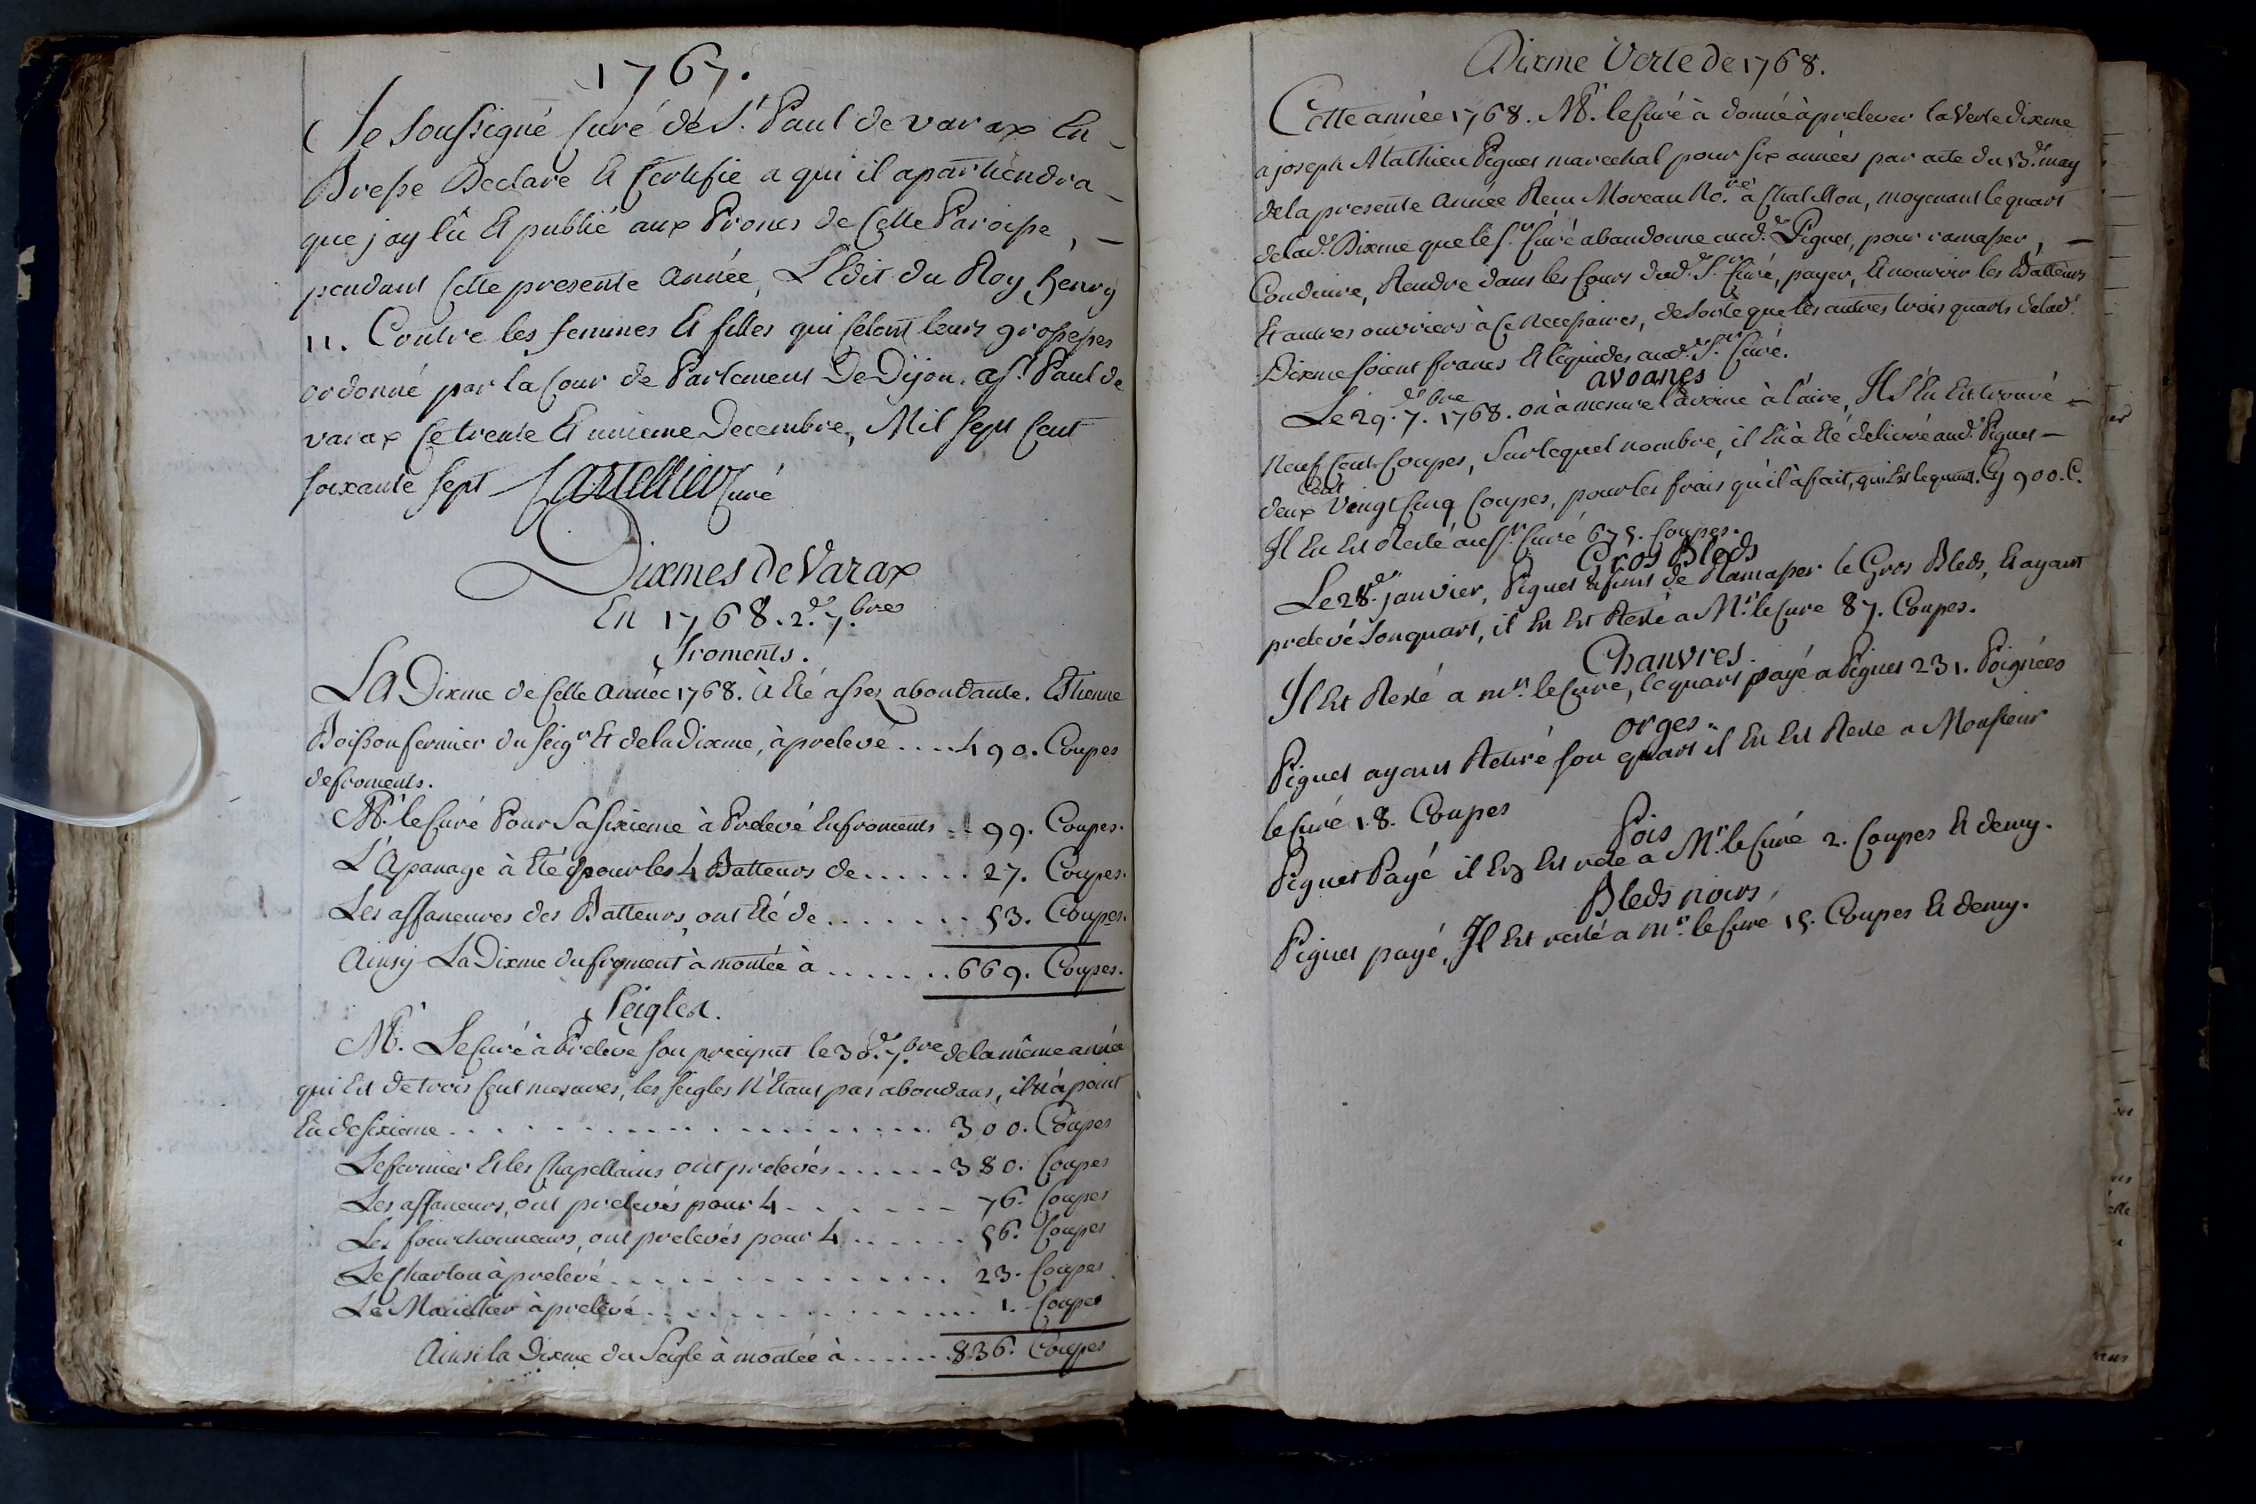 1767.
Je Soussigné Curé de St. Paul de varax En
Bresse Declare Et Certifie a qui il apartiendra
que j'ay lû Et publié aux Prones de Cette Paroisse,
pendant Cette presente année, L'Edit du Roy henry
11. Contre les femmes Et filles qui Celent leurs grossesses
ordonné par la Cour de Parlement De Dijon. a St. Paul de
varax Ce trente Et unieme Decembre, Mil Sept Cent
Soixante Sept Cartellier Curé
Dixmes de Varax
En 1768. 2.de 7.bres
Froments.
La Dixme de Cette année 1768. à Eté assez abondante. Estienne
Boisson fermier du Seigr Et de la Dixme, à prelevé .... 490. Coupes
de froments.
Mr. le Curé Pour Sa Sixieme à Prelevé En froments .. 99. Coupes.
L'Apanage à Eté pour les 4 Batteurs de ...... 27. Coupes.
Les affaneures des Batteurs, ont Eté de ....... 53. Coupes.
Ainsy La Dixme du froment à montée à ....... 669. Coupes.
Seigles.
Mr. Le Curé à Prelevé Son preciput le 30.de 7.bre de la même année
qui Est de trois Cent mesures, les Seigles N'Etant pas abondans, il N'à point
Eu de Sixieme .................. 300. Coupes
Le fermier Et les Chapellains ont prelevés ...... 380. Coupes
Les affaneurs, ont prelevés pour 4 ....... 76. Coupes
Les fourchonneurs, ont prelevés pour 4 ...... 56. Coupes
Le Charton à prelevé .............. 23. Coupes
Le Mareillier à prelevé .............. 1. Coupes
Ainsi la Dixme du Seigle à montée à ...... 836. Coupes
Dixme Verte de 1768.
Cette année 1768. Mr. le Curé à donné à prelever la Verte dixme
a joseph Mathieu Piguet marechal pour Six années par acte du 13.e may
de la presente année Reçu Moreau No.re à Chatillon, moyenant le quart
de lad.e Dixme que le Sr. Curé abandonne aud.t Piguet, pour ramasser,
Conduire, Rendre dans les Cours dud.t Sr. Curé, payer, Et nourrir les Batteurs
Et autres ouvriers à Ce Necessaires, de Sorte que les autres trois quarts de lad.e
Dixme Soient francs Et liquides aud.t Sr. Curé.
avoanes
Le 29.de 7.bre 1768. on à mesuré l'avoine à l'aire, Il S'En Est trouvé
Neuf Cent Coupes, Sur lequel nombre, il En à Eté delivré aud. Piguet
deux Cent Vingt Cinq Coupes, pour les frais qu'il à fait, qui Est le quart. Cy 900. C.
Il En Est Resté aud. Sr. Curé 675. Coupes.
Gros Bleds
Le 28.de janvier, Piguet a fini de Ramasser le Gros Bleds, Et ayant
prelevé Son quart, il En Est Resté a Mr. le Curé 87. Coupes.
Chanvres.
Il Est Resté a mr. le Curé, le quart payé a Piguet 231. Poignées
orges.
Piguet ayant Retiré Son quart il En Est Resté a Monsieur
le Curé 18. Coupes
Pois
Piguet Payé il En Est resté a Mr. le Curé 2. Coupes Et demy.
Bleds noirs
Piguet payé, Il Est resté a mr. le Curé 15. Coupes Et demy.